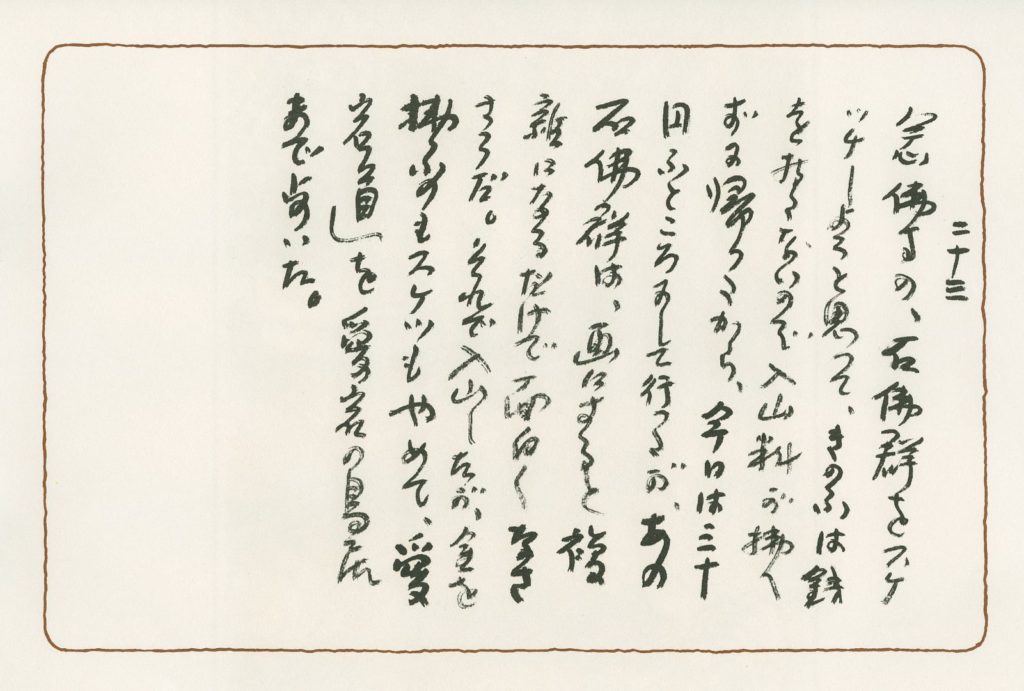 二十三
念佛寺の、石佛群をスケ
ツチしようと思つて、きのふは銭
を持たないので入山料が拂へ
ずに帰つたから、今日は三十
円ふところにして行つたが、あの
石佛群は、画にすると複
雑になるだけで面白くなさ
さうだ。それで入山したが、金を
拂ふのもスケツもやめて、愛
宕道を愛宕の鳥居
まで歩いた。